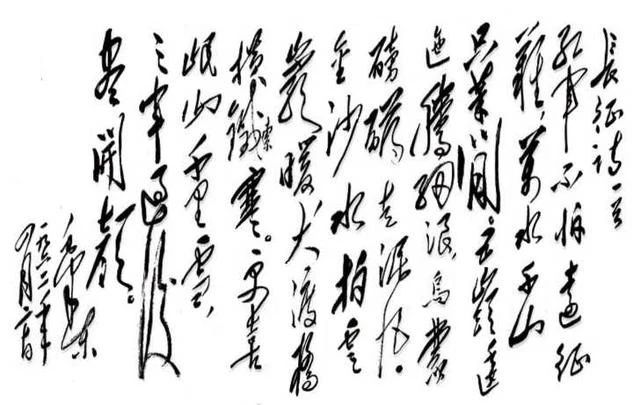 長征詩一首
红軍不怕遠征
難，萬水千山
只等閒。五嶺逶
迤騰細浪，烏蒙
磅礴走泥丸。
金沙水拍雲
巖暖，大渡橋
横鐵索寒。更喜
岷山千里雪，
三軍過後
盡開顏。
毛澤東
一九六二年
四月